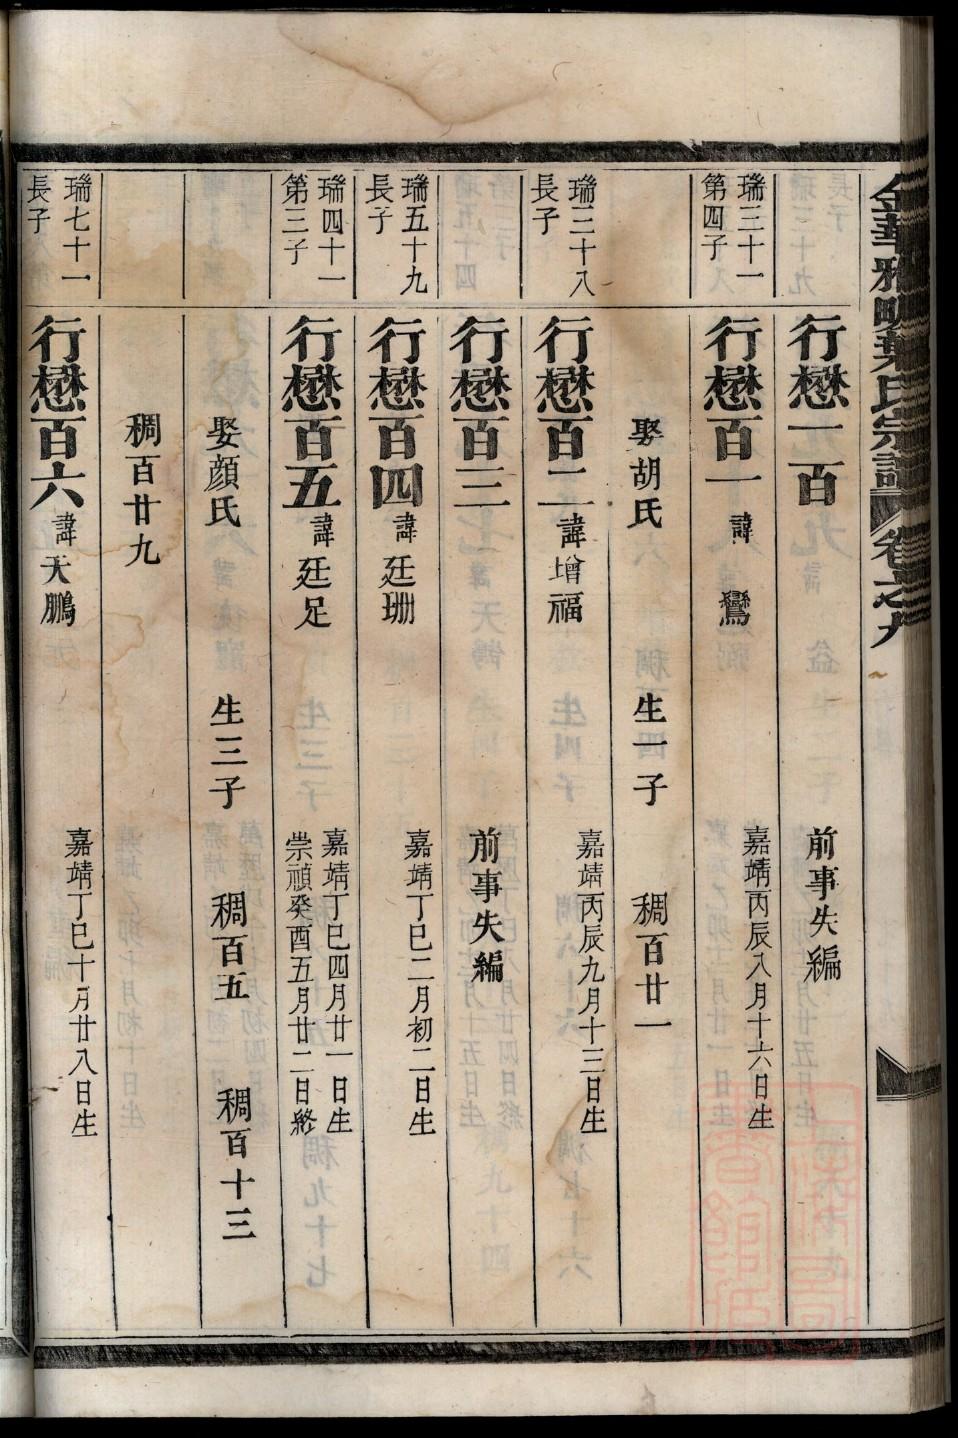 金華雅畈葉氏宗譜 卷之九
行懋一百 前事失編
瑞三十一
第四子
行懋百一 諱鸞 嘉靖丙辰八月十六日生
娶胡氏 生一子 稠百廿一
瑞三十八
長子
行懋百二 諱增福 嘉靖丙辰九月十三日生
行懋百三 前事失編
瑞五十九
長子
行懋百四 諱廷珊 嘉靖丁巳二月初二日生
瑞四十一
第三子
行懋百五 諱廷足 嘉靖丁巳四月廿一日生
崇禎癸酉五月廿二日終
娶顏氏 生三子 稠百五 稠百十三
稠百廿九
瑞七十一
長子
行懋百六 諱天鵬 嘉靖丁巳十月廿八日生